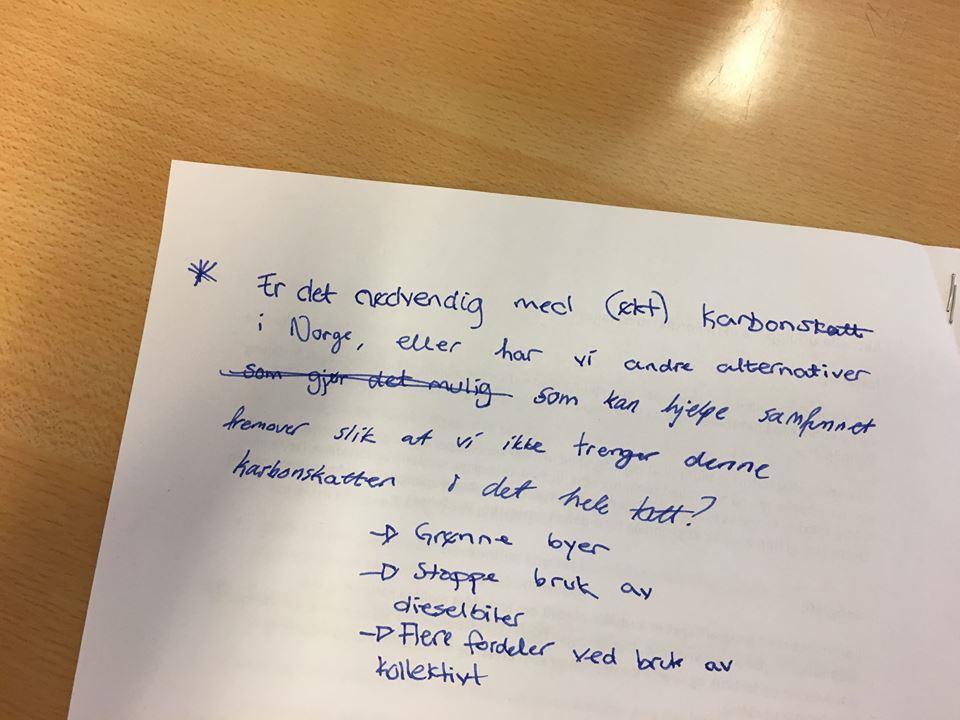 * Er det nødvendig med (økt) karbonskatt
i Norge, eller har vi andre alternativer
som gjør det mulig som kan hjelpe samfunnet
fremover slik at vi ikke trenger denne
karbonskatten i det hele tatt?
→ Grønne byer
→ Stoppe bruk av
dieselbiler
→ Flere fordeler ved bruk av
kollektivt